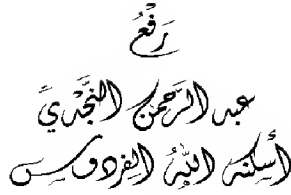 رَفْعُ
عبد الرَّحمن النَّجْدِيّ
أسكنه اللهُ الفِردوس